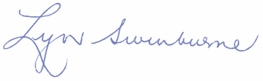 Lyn Swinburne